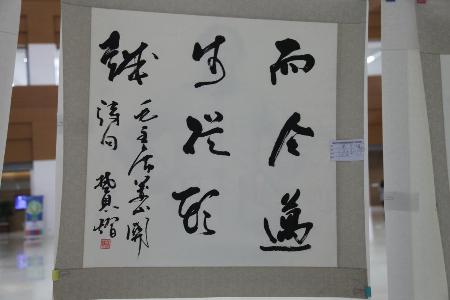 而今邁
步從頭
越
毛主席婁山關
詩句 贊熠